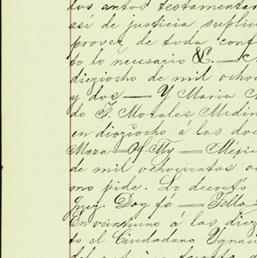 los autos testamentar
así de justicia suplic
proveer de toda conf
to lo necesario &.
dieciocho de mil ocho
y dos — Y Maria
do F. Morales Medin
en dieziocho á las do
Maza — Of Tty — Méjic
de mil ochocientos oc
mo pide. Lo decretó
Juez. Doy fé — Tello
En veintiuno á las diez
to el Ciudadano Ygnac